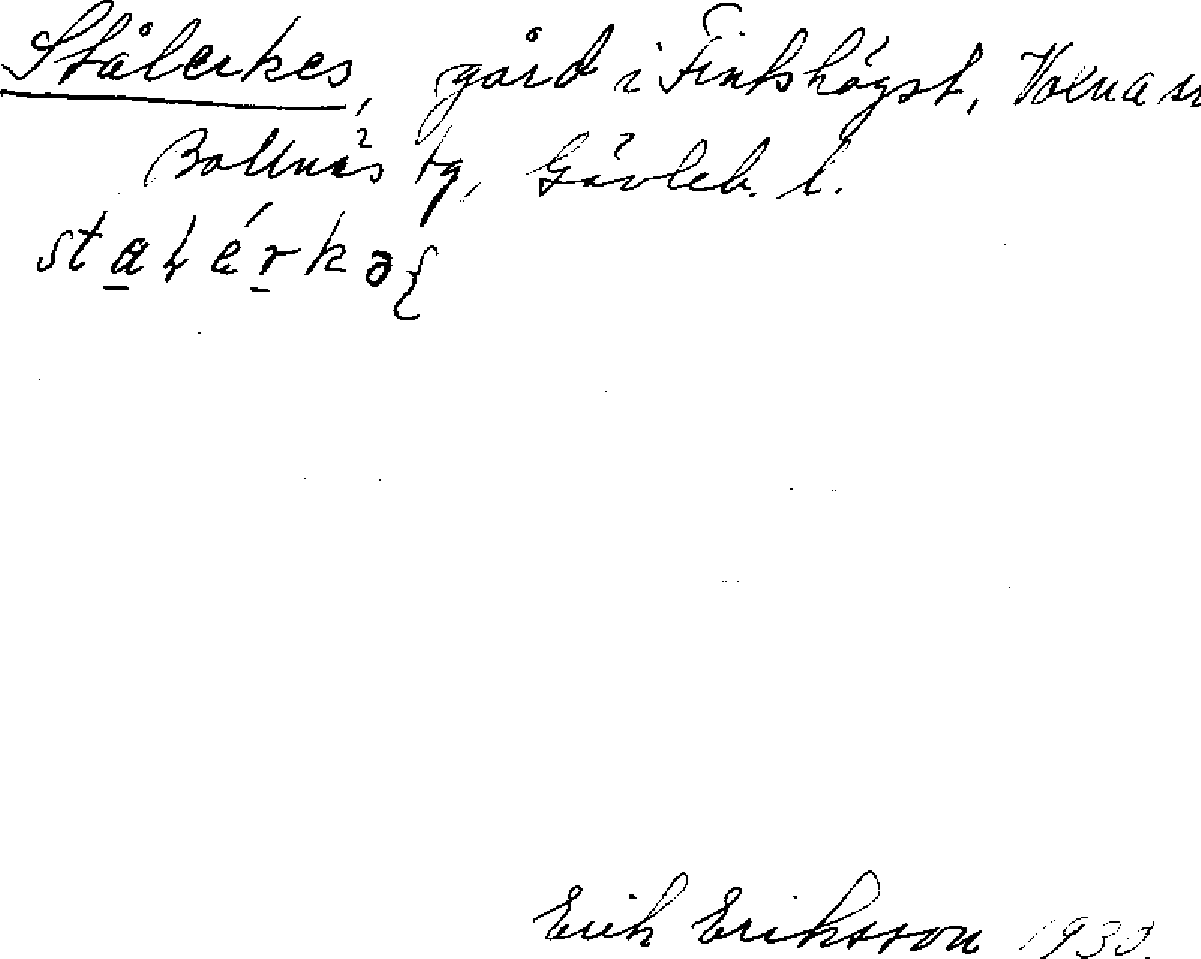 Stålerkes, gård i Finkshögst, Voxna sn
Bollnäs tg, Gävleb. l.
Erik Eriksson 1930.